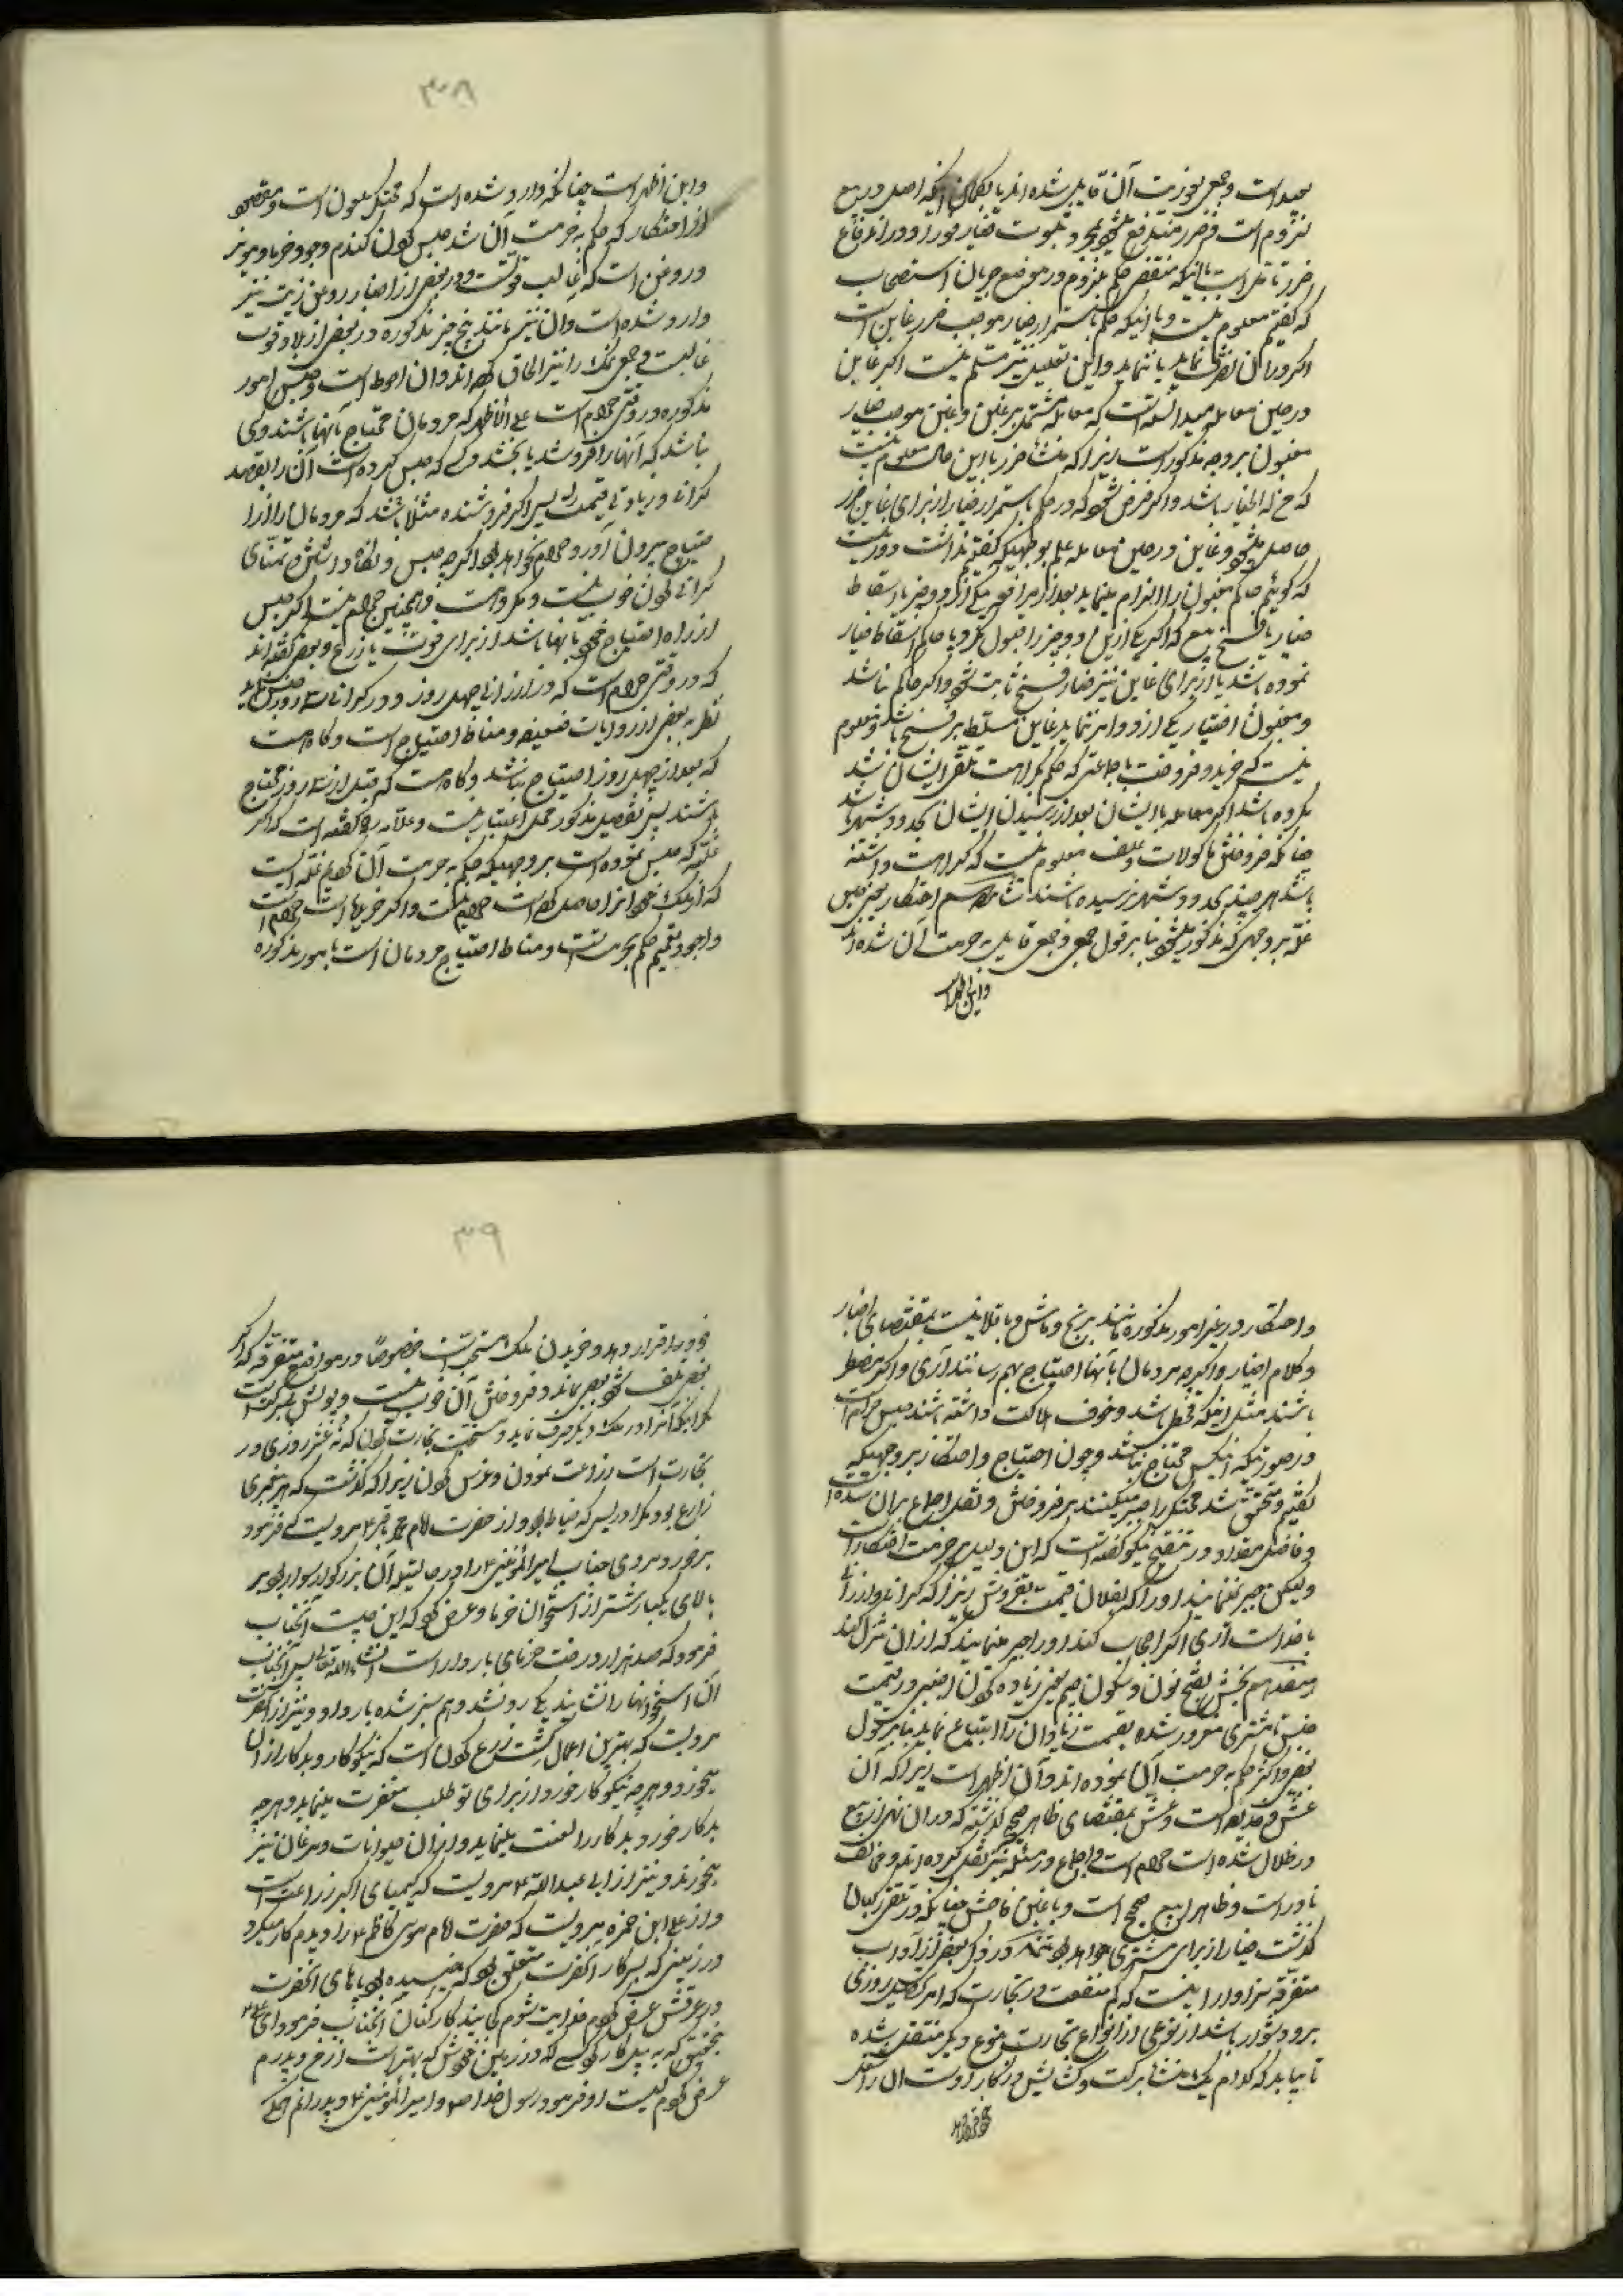 بعید است و جمعی بفوریت آن قایل شده اند با بگمان اینکه اصل در بیع
لزوم است و ضرر مندفع میشود بمجرد ثبوت خیار فورا و در اندفاع
ضرر تامل است با اینکه مقتضی حکم بلزوم در موضع جریان استصحاب
که گفتیم معلوم نیست و با اینکه حکم باستمرار خیار موجب ضرر غابن است
اگر در آن تصرف نماید یا ننماید و این تعلیل نیز مسلم نیست اگر غابن
در حین معامله میدانسته است که معامله مشتمل بر غبن و غبن موجب خیار
مغبون بر وجه مذکور است زیرا که منشأ ضرر با این حال معلوم نیست
که خیار باشد و اگر فرض شود که در حکم باستمرار خیار از برای غابن ضرر
حاصل میشود و غابن در حین معامله علم بوجهیکه گفتیم نداشت دور نیست
که گوئیم حاکم مغبون را الزام مینماید بعد از مرافعه بیکی از دو چیز یا اسقاط
خیار یا فسخ بیع که اگر یکی از این دو چیز را قبول نکرد یا حاکم اسقاط خیار
نموده باشد یا از برای غابن نیز خیار فسخ ثابت شود و اگر حاکم نباشد
و مغبون اختیار یکی از دو امر ننماید غابن مسلط بر فسخ باشد و معلوم
نیست که خرید و فروخت با جماعتی که حکم بکراهت تلقی ایشان شد
مکروه باشد اگر معامله با ایشان بعد از رسیدن ایشان بحدود شهر باشد
چنانکه فروختن ماکولات و علف معلوم نیست که کراهت داشته
باشد هر چند بحدود شهر نرسیده باشند شانزدهم احتکار یعنی حبس
غله بر وجهی که مذکور میشود بنا بر قول جمعی و جمعی قایل بحرمت آن شده اند
و این اظهر است
۳۸
و این اظهر است چنانکه وارد شده است که محتکر ملعون است و مقصود
از احتکار که حکم بحرمت آن شد حبس کردن گندم و جو و خرما و مویز
و روغن است که غالب قوتست و در بعضی از اخبار روغن زیت نیز
وارد شده است و آن نیز مانند پنج چیز مذکوره در بعضی از بلاد قوت
غالبست و جمعی نمک را نیز الحاق کرده اند و آن احوط است و حبس امور
مذکوره در وقتی حرام است علی الاظهر که مردمان محتاج بآنها باشند و کسی
نباشد که آنها را فروشد یا بخشد و کسی که حبس کرده است آن را بقصد
گرانی و زیادتی قیمت پس اگر فروشنده مثلا باشد که مردمان را از
احتیاج بیرون آورد حرام نخواهد بود اگر چه حبس و نگاه داشتن و تمنای
گرانی کردن خوب نیست و مکروه است و همچنین حرام نیست اگر حبس
از راه احتیاج خود بآنها باشد از برای قوت یا زرع و بعضی گفته اند
که در وقتی حرام است که در ارزانی چهل روز و در گرانی سه روز حبس نماید
نظر به بعضی از روایات ضعیفه و مناط احتیاج است و گاه هست
که بعد از چهل روز احتیاج نباشد و گاه هست که قبل از سه روز محتاج
باشند پس تفصیل مذکور محل اعتبار نیست و علامه ره گفته است که اگر
غله که حبس نموده است بر وجهیکه حکم بحرمت آن کردیم غله است
که از ملک خود آنرا حاصل کرده است حرام نیست و اگر خریده است حرام است
و اجود تعمیم حکم بحرمتست و مناط احتیاج مردمان است بامور مذکوره
و احتکار در غیر امور مذکوره مانند برنج و ماش و باقلا نیست بمقتضای اخبار
و کلام اخیار و اگر چه مردمان بآنها احتیاج بهم رسانند آری و اگر مضطر
باشند مثل اینکه قحطی باشد و خوف هلاکت داشته باشند حبس حرام است
در صورتیکه آنکس محتاج نباشد و چون احتیاج و احتکار بر وجهیکه
گفتیم متحقق شد محتکر را جبر میکنند بر فروختن و نقل اجماع بر آن شده است
و فاضل مقداد در تنقیح میگوید گفته است که این دلیل بر حرمت احتکار است
و لیکن جبر نمینمایند او را که بفلان قیمت بفروش زیرا که گرانی و ارزانی
با خداست آری اگر اجحاف کند او را جبر مینمایند که از آن تنزل کند
هفدهم نجش بفتح نون و سکون جیم یعنی زیاده کردن اجنبی در قیمت
جنس تا مشتری مغرور شده بقیمت زیاد آن را ابتیاع نماید بنا بر قول
بعضی و اکثر حکم بحرمت آن نموده اند و آن اظهر است زیرا که آن
غش و خدیعه است و غش بمقتضای ظاهر صحیح گذشته که در آن نهی از بیع
در ظلال شده است حرام است و اجماع در مسئله نیز نقل کرده اند و مخالف
نادر است و ظاهر این بیع صحیح است و با غبن فاحش چنانکه در تلقی رکبان
گذشت خیار از برای مشتری خواهد بود تتمه در ذکر بعضی از آداب
متفرقه سزاوار این است که کم منفعت در تجارت که امر تحصیل روزی
بر او دشوار باشد از نوعی از انواع تجارت بنوع دیگر منتقل شده
تا بیابد که کدام یک منشأ برکت و گشایش در کار اوست آن را شغل
خود قرار دهد
۳۹
خود قرار دهد و خریدن ملک مستحبست خصوصا در مواضع متفرقه که اگر
بعضی تلف شود بعضی بماند و فروختن آن خوب نیست و پولش بی برکت است
مگر اینکه آنرا در ملک دیگر صرف نماید و مستحبست تجارت کردن که نه عشر روزی در
تجارت است و زراعت نمودن و غرس کردن زیرا که گذشت که هر پیغمبری
زارع بود مگر ادریس که خیاط بود و از حضرت امام محمد باقر ع مرویست که فرمود
برخورد مردی جناب امیر المؤمنین ع را در حالتیکه آن بزرگوار سوار بود بر
بالای یکبار شتر از استخوان خرما و عرض کرد که این چیست آنجناب
فرمود که صد هزار درخت خرمای باردار است انشاء الله تعالی پس آنجناب
آن استخوانها را نشانید یکی رد نشد و هم سبز شده بار داد و نیز از آنحضرت
مرویست که بهترین اعمال کشت و زرع کردن است که نیکوکار و بدکار از آن
میخورد و هر چه نیکوکار خورد از برای تو طلب مغفرت مینماید و هر چه
بدکار خورد بدکار را لعنت مینماید و از آن حیوانات و مرغان نیز
میخورند و نیز از ابی عبدالله ع مرویست که کیمیای اکبر زراعت است
و از علی ابن حمزه مرویست که حضرت امام موسی کاظم ع را دیدم کار میکرد
در زمینی که بسرکار آنحضرت متعلق بود که خیسیده بود پاهای آنحضرت
در عرقش عرض کردم فدایت شوم کجایند کارکنان آنجناب فرمود ای علی
بتحقیق که به بیل کار کرد کسی که در زمین خودش که بهتر است از من و پدرم
عرض کردم کیست او فرمود رسول خدا ص و امیر المؤمنین ع و پدرانم همگی